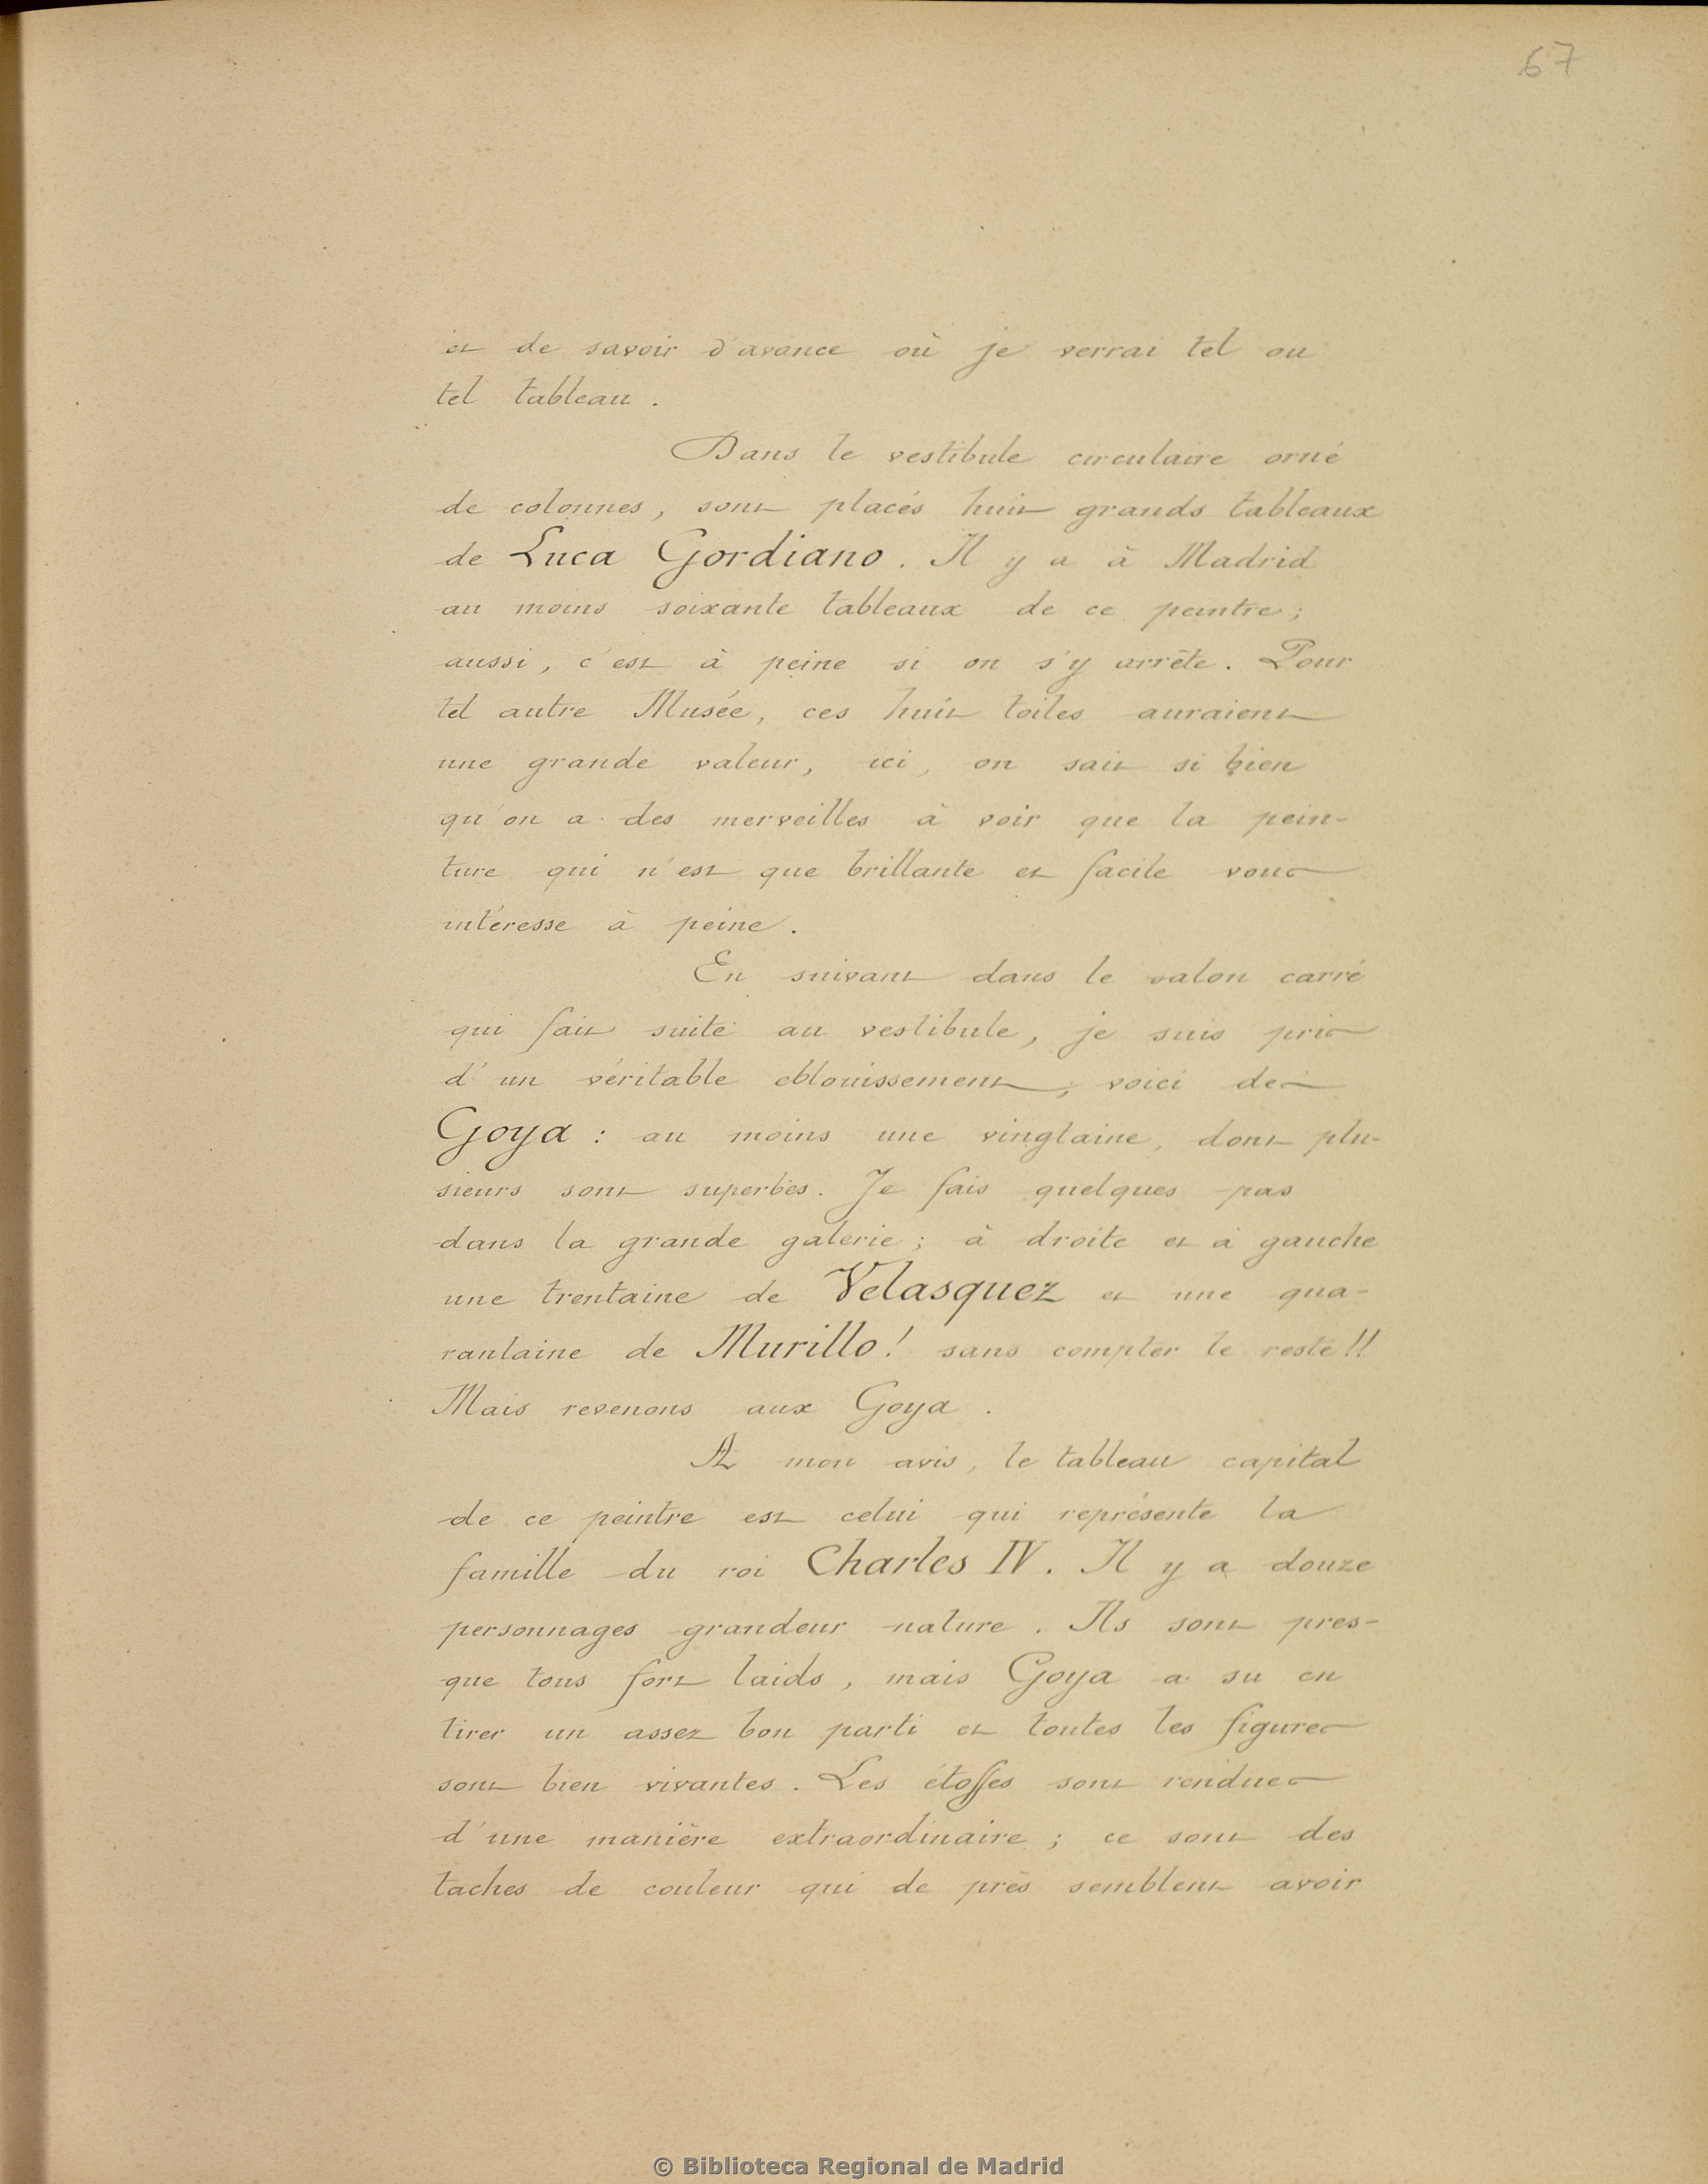 67
et de savoir d'avance où je verrai tel ou
tel tableau.
Dans le vestibule circulaire orné
de colonnes, sont placés huit grands tableaux
de Luca Gordiano. Il y a à Madrid
au moins soixante tableaux de ce peintre;
aussi, c'est à peine si on s'y arrête. Pour
tel autre Musée, ces huit toiles auraient
une grande valeur, ici, on sait si bien
qu'on a des merveilles à voir que la pein-
ture qui n'est que brillante et facile vous
intéresse à peine.
En suivant dans le salon carré
qui fait suite au vestibule, je suis pris
d'un véritable eblouissement; voici des
Goya : au moins une vingtaine, dont plu-
sieurs sont superbes. Je fais quelques pas
dans la grande galerie; à droite et à gauche
une trentaine de Velasquez et une qua-
rantaine de Murillo! sans compter le reste!!
Mais revenons aux Goya.
A mon avis, le tableau capital
de ce peintre est celui qui représente la
famille du roi Charles IV. Il y a douze
personnages grandeur nature. Ils sont pres-
que tous fort laids, mais Goya a su en
tirer un assez bon parti et toutes les figures
sont bien vivantes. Les étoffes sont rendues
d'une manière extraordinaire; ce sont des
taches de couleur qui de près semblent avoir
© Biblioteca Regional de Madrid